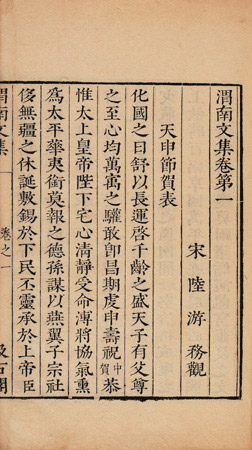 渭南文集卷第一
宋 陸 游 務觀
天申節賀表
化國之日舒以長運啓千齡之盛天子有父尊
之至心均萬㝢之驩敢卽昌期虔申壽祝中賀恭
惟太上皇帝陛下宅心清靜受命溥將協氣熏
爲太平華夷銜莫報之德孫謀以燕翼子宗社
侈無疆之休誕敷錫於下民丕靈承於上帝臣
渭南文集
卷之一
汲古閣